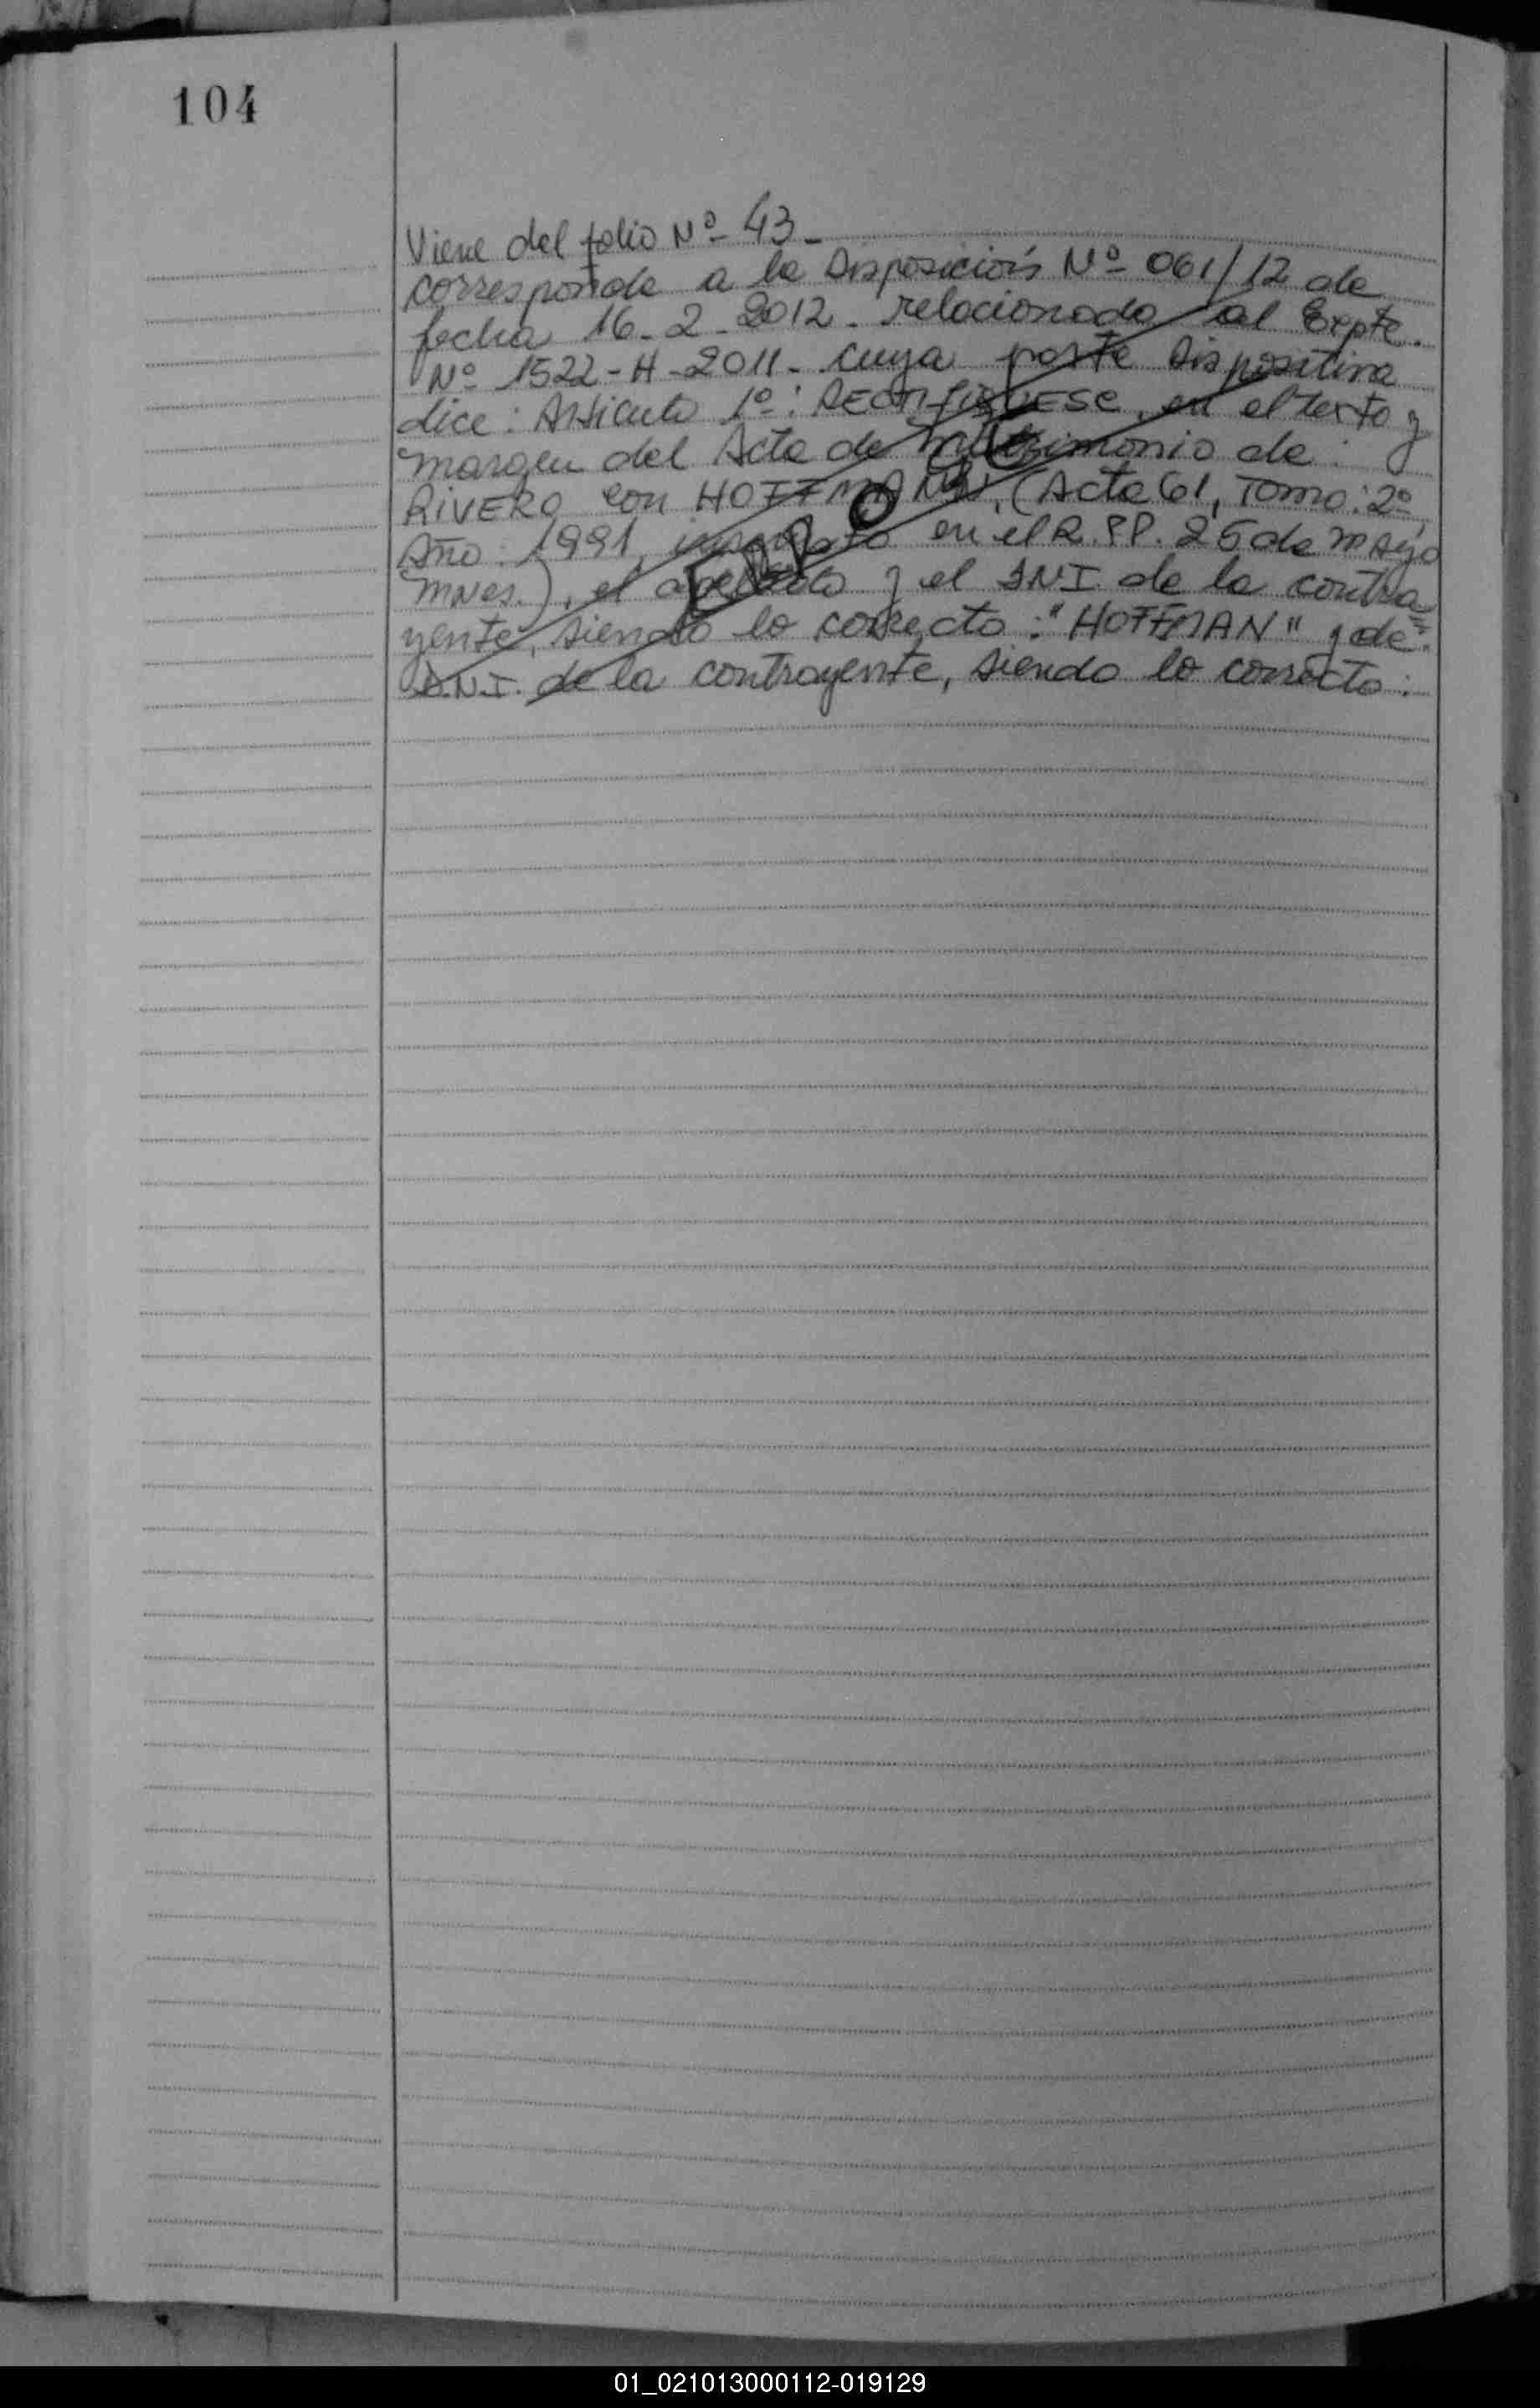 104
Viene del folio Nº 43_
corresponde a la Disposición Nº 061/12 de
fecha 16-2-2012. relacionado al Expte.
Nº 1522-H-2011- cuya parte Dispositiva
dice: Articulo 1º: RECTIFIQUESE, en el texto y
margen del Acta de Matrimonio de:
RIVERO con HOFFMANN, (Acta 61, Tomo: 2º,
Año: 1991, inscripto en el R.PP. 25 de mayo
mnes.), el apellido y el DNI de la contra=
yente, siendo lo correcto: "HOFFMAN" y de
D.N.I. de la contrayente, siendo lo correcto:
01_021013000112-019129